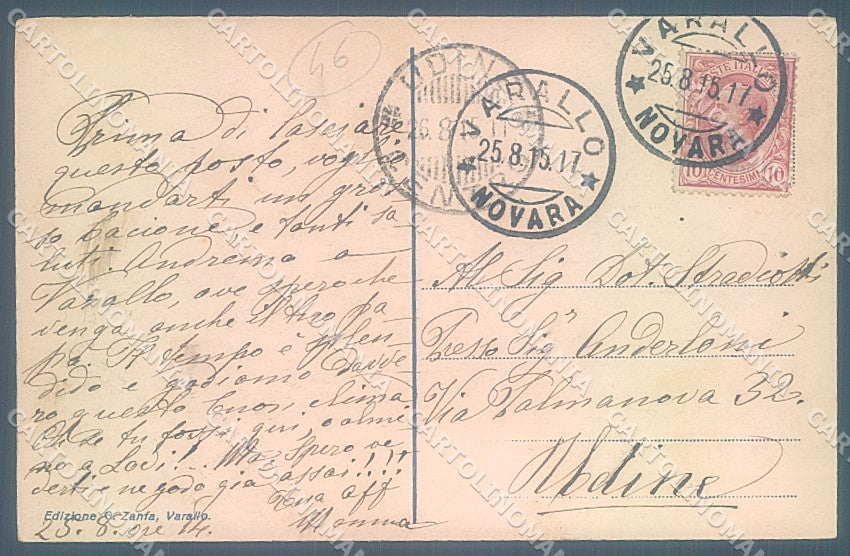 46
Prima di lasciare
questo posto, voglio
mandarti un gros
so bacione e tanti sa
luti. Andremo a
Varallo, ove spero che
venga anche il tuo pa
pa. Il tempo è splen
dido e godiamo davve
ro questo buon clima
se tu fossi qui, o alme
no a Lodi!.. Ma spero ve
derti e ne godo già assai!!!!
tua aff
Mamma
25. 8. 14.
Edizione G. Zanfa, Varallo.
UDINE
26.8
VARALLO
25.8.15.17
NOVARA
VARALLO
25.8.15.17
NOVARA
POSTE ITALIANE
10 CENTESIMI 10
Al Sig Dot. Stradiotti
Presso Sigr Anderloni
Via Palmanova 32.
Udine
CARTOLINOMANIA